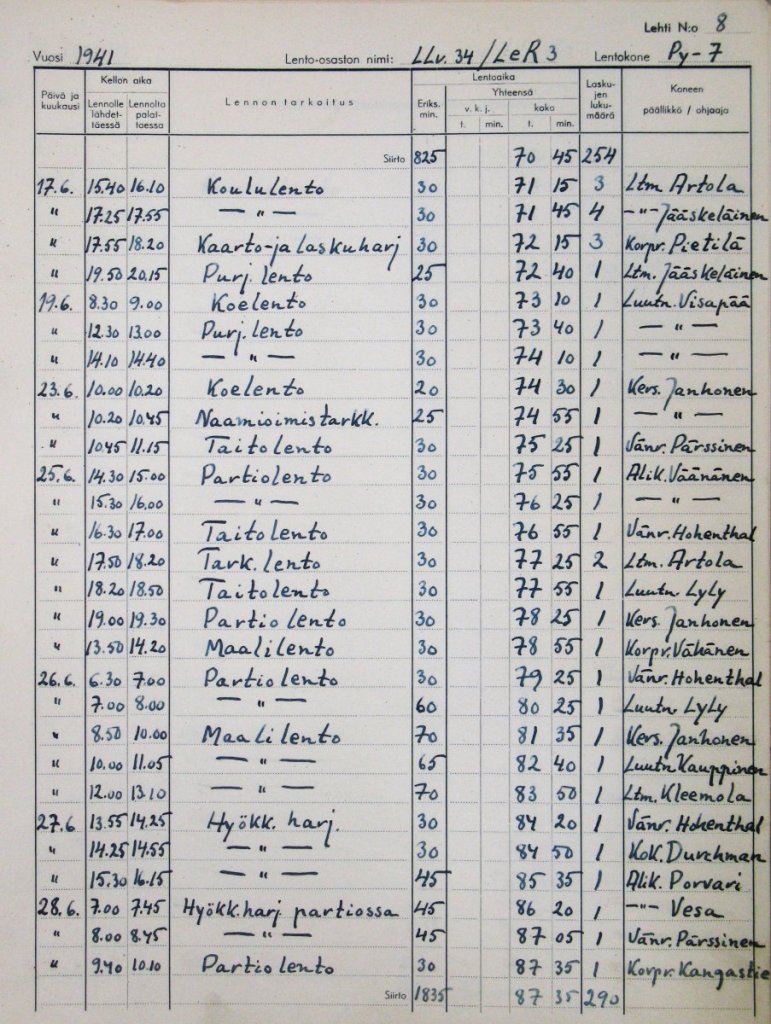 Lehti N:o 8
Vuosi 1941 Lento-osaston nimi: LLv. 34 / LeR 3 Lentokone Py-7
Päivä ja kuukausi Kellon aika Lennolle lähdettäessä Lennolta palattaessa Lennon tarkoitus Lentoaika Eriks. min. Yhteensä v. k. j. t. min. koko t. min. Laskujen lukumäärä Koneen päällikkö / ohjaaja
Siirto 825 70 45 254
17.6. 15.40 16.10 Koululento 30 71 15 3 Ltm. Artola
" 17.25 17.55 — " — 30 71 45 4 —"— Jääskeläinen
" 17.55 18.20 Kaarto-ja laskuharj 30 72 15 3 Korpr. Pietilä
" 19.50 20.15 Purj. lento 25 72 40 1 Ltm. Jääskeläinen
19.6. 8.30 9.00 Koelento 30 73 10 1 Luutn. Visapää
" 12.30 13.00 Purj. lento 30 73 40 1 — " —
" 14.10 14.40 — " — 30 74 10 1 — " —
23.6. 10.00 10.20 Koelento 20 74 30 1 Kers. Janhonen
" 10.20 10.45 Naamioimistarkk. 25 74 55 1 — " —
" 10.45 11.15 Taitolento 30 75 25 1 Vänr. Pärssinen
25.6. 14.30 15.00 Partiolento 30 75 55 1 Alik. Väänänen
" 15.30 16.00 — " — 30 76 25 1 — " —
" 16.30 17.00 Taitolento 30 76 55 1 Vänr. Hohenthal
" 17.50 18.20 Tark. lento 30 77 25 2 Ltm. Artola
" 18.20 18.50 Taitolento 30 77 55 1 Luutn. Lyly
" 19.00 19.30 Partiolento 30 78 25 1 Kers. Janhonen
" 13.50 14.20 Maalilento 30 78 55 1 Korpr. Vähänen
26.6. 6.30 7.00 Partiolento 30 79 25 1 Vänr. Hohenthal
" 7.00 8.00 — " — 60 80 25 1 Luutn. Lyly
" 8.50 10.00 Maalilento 70 81 35 1 Kers. Janhonen
" 10.00 11.05 — " — 65 82 40 1 Luutn. Kauppinen
" 12.00 13.10 — " — 70 83 50 1 Ltm. Kleemola
27.6 13.55 14.25 Hyökk. harj. 30 84 20 1 Vänr. Hohenthal
" 14.25 14.55 — " — 30 84 50 1 Kok. Durchman
" 15.30 16.15 — " — 45 85 35 1 Alik. Porvari
28.6. 7.00 7.45 Hyökk. harj partiossa 45 86 20 1 —"— Vesa
" 8.00 8.45 — " — 45 87 05 1 Vänr. Pärssinen
" 9.40 10.10 Partiolento 30 87 35 1 Korpr. Kangastie
Siirto 1835 87 35 290